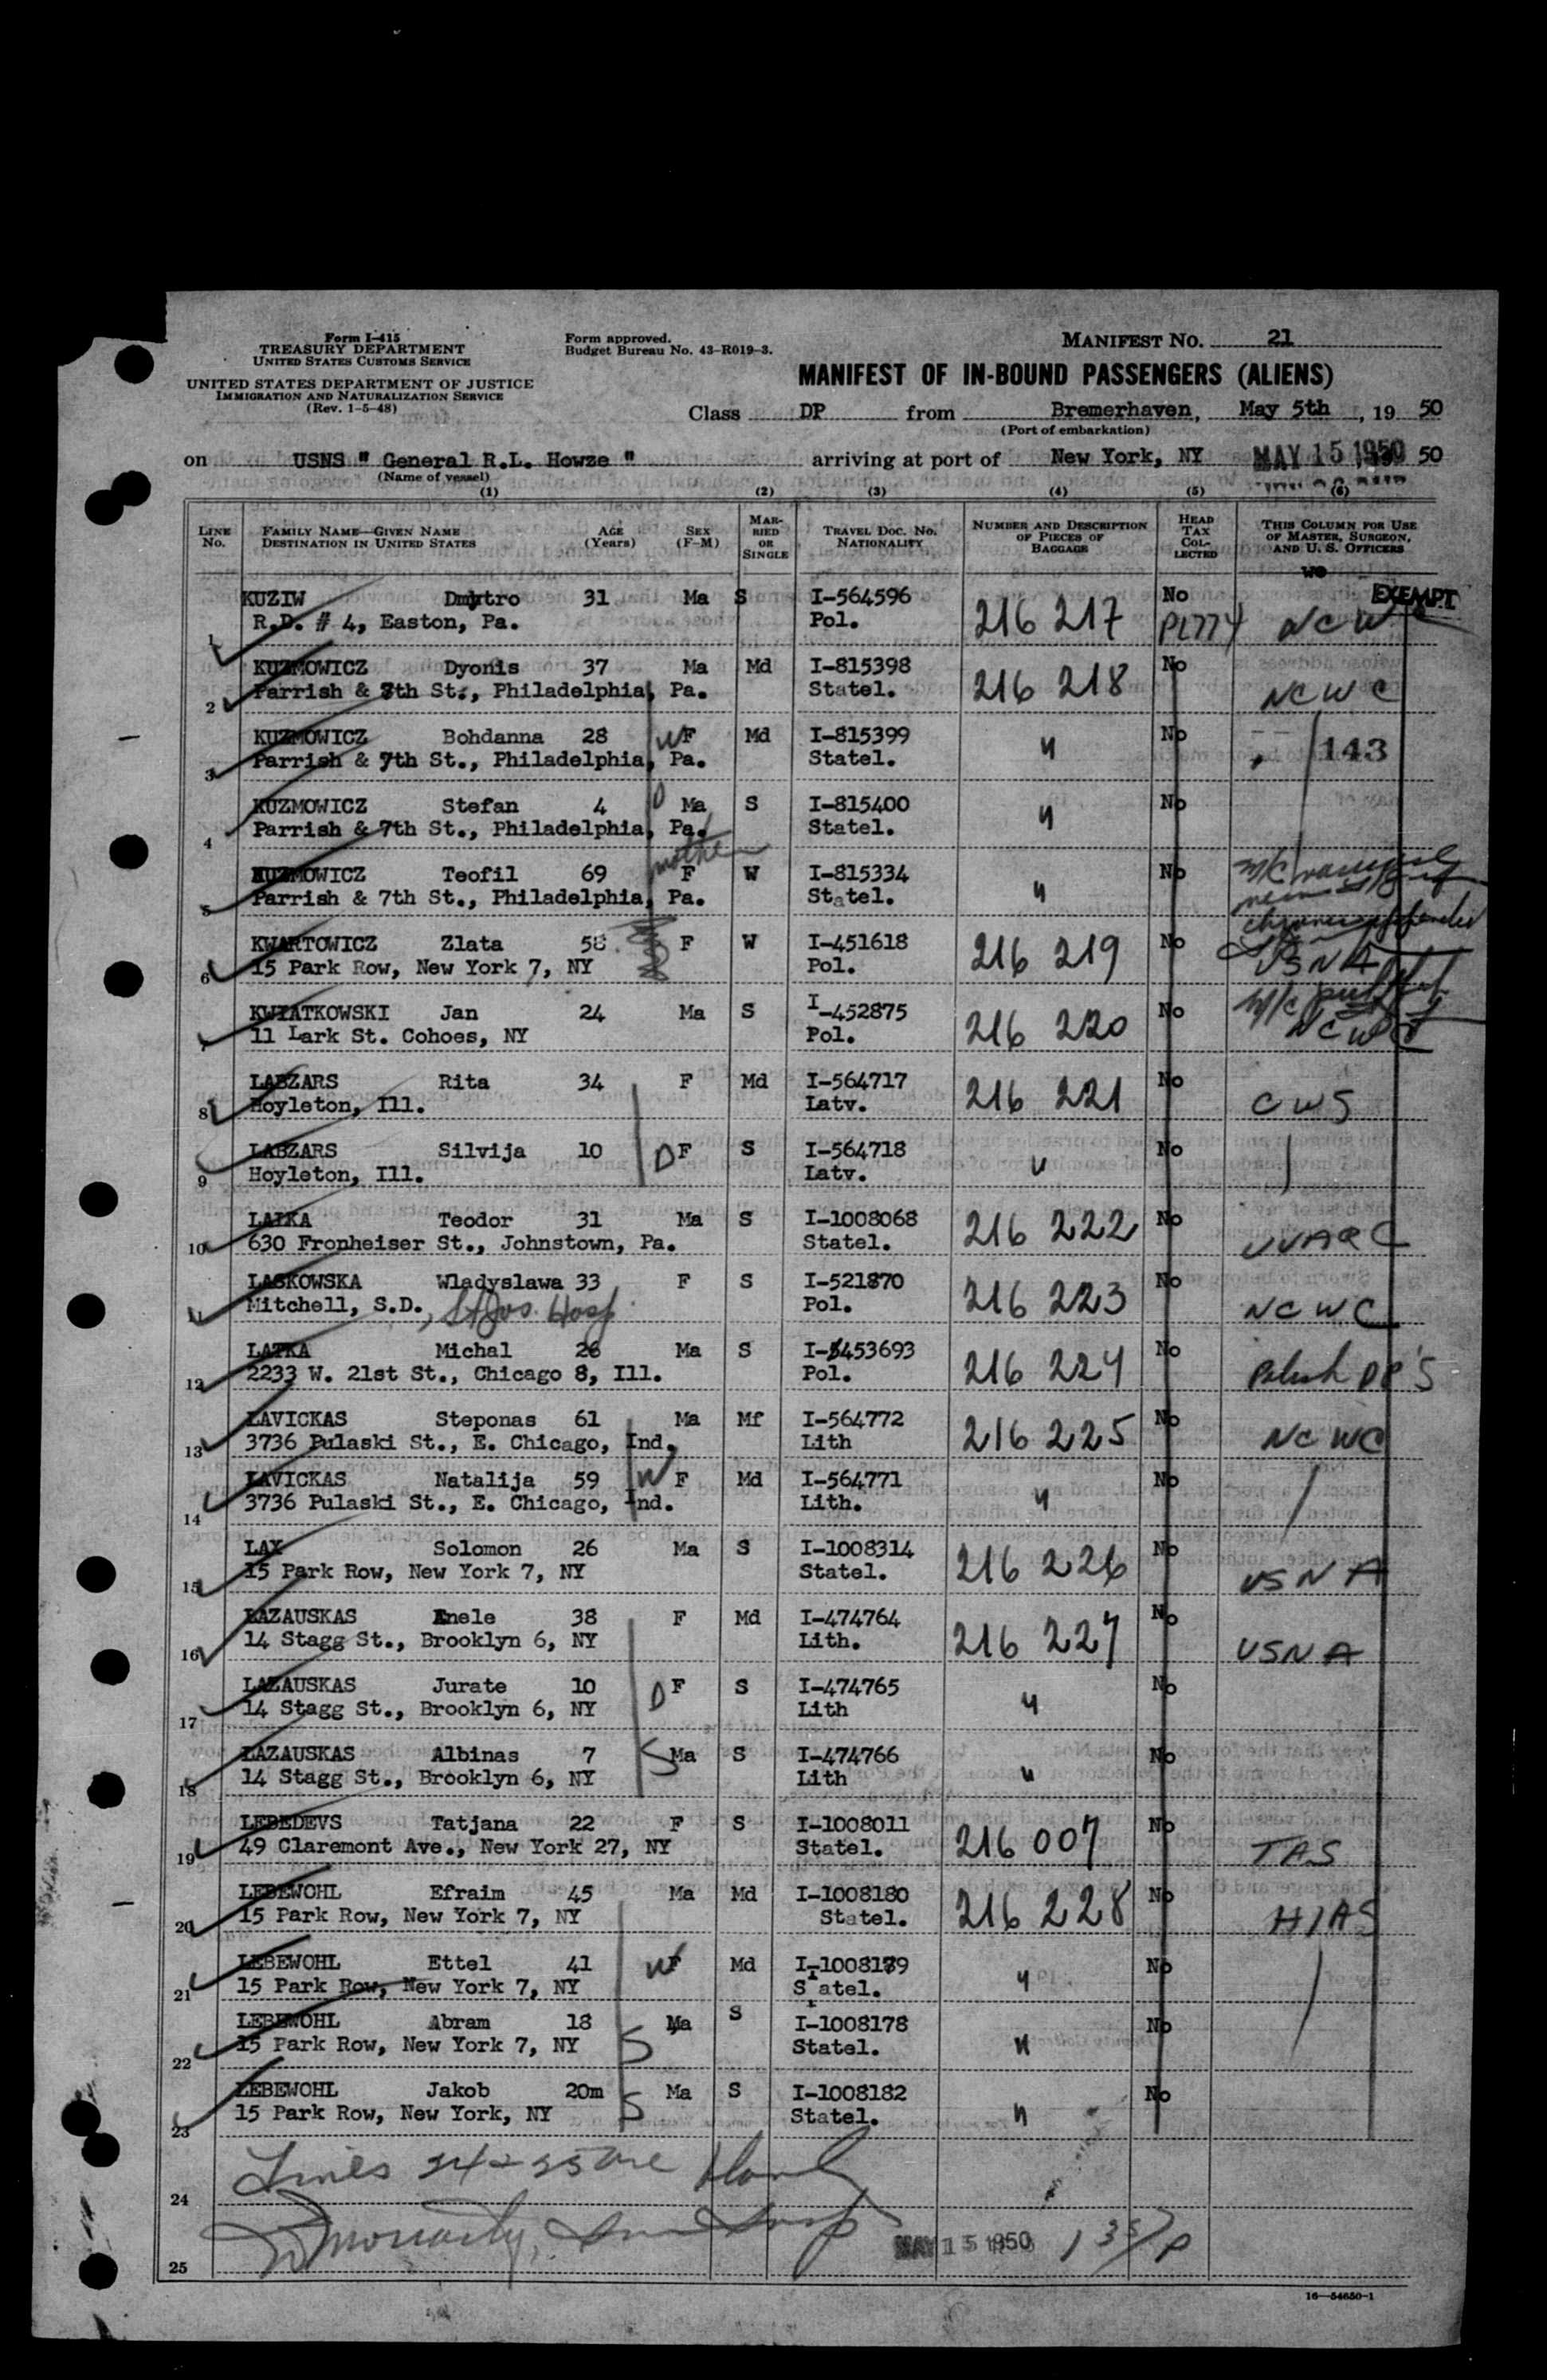 Form I-415
TREASURY DEPARTMENT
UNITED STATES CUSTOMS SERVICE
UNITED STATES DEPARTMENT OF JUSTICE
IMMIGRATION AND NATURALIZATION SERVICE
(Rev. 1-5-48)
Form approved.
Budget Bureau No. 43-R019-3.
MANIFEST NO. 21
MANIFEST OF IN-BOUND PASSENGERS (ALIENS)
Class DP from Bremerhaven, May 5th, 19 50
(Port of embarkation)
on USNS " General R.L. Howze " arriving at port of New York, NY MAY 15 1950 50
(Name of vessel)
(1) (2) (3) (4) (5) (6)
LINE No. FAMILY NAME—GIVEN NAME DESTINATION IN UNITED STATES AGE (Years) SEX (F-M) MARRIED OR SINGLE TRAVEL DOC. NO. NATIONALITY NUMBER AND DESCRIPTION OF PIECES OF BAGGAGE HEAD TAX COLLECTED THIS COLUMN FOR USE OF MASTER, SURGEON, AND U. S. OFFICERS
KUZIW Dmytro 31 Ma S I-564596 216 217 No EXEMPT
1 R.D. # 4, Easton, Pa. Pol. NCWC
KUZMOWICZ Dyonis 37 Ma Md I-815398 216 218 No
2 Parrish & 7th St., Philadelphia, Pa. Statel. NCWC
KUZMOWICZ Bohdanna 28 W F Md I-815399 " No
3 Parrish & 7th St., Philadelphia, Pa. Statel. 143
KUZMOWICZ Stefan 4 Ma S I-815400 " No
4 Parrish & 7th St., Philadelphia, Pa. Statel.
KUZMOWICZ Teofil 69 mother F W I-815334 " No
5 Parrish & 7th St., Philadelphia, Pa. Statel.
KWARTOWICZ Zlata 58 F W I-451618 216 219 No
6 15 Park Row, New York 7, NY Pol. USNA
KWIATKOWSKI Jan 24 Ma S I-452875 216 220 No
7 11 Lark St. Cohoes, NY Pol. NCWC
LABZARS Rita 34 F Md I-564717 216 221 No
8 Hoyleton, Ill. Latv. CWS
LABZARS Silvija 10 D F S I-564718 " No
9 Hoyleton, Ill. Latv.
LAIKA Teodor 31 Ma S I-1008068 216 222 No
10 630 Fronheiser St., Johnstown, Pa. Statel. UUARC
LASKOWSKA Wladyslawa 33 F S I-521870 216 223 No
11 Mitchell, S.D., St Jos. Hosp. Pol. NCWC
LATKA Michal 26 Ma S I-453693 216 224 No
12 2233 W. 21st St., Chicago 8, Ill. Pol. Polish DP'S
LAVICKAS Steponas 61 Ma Mf I-564772 216 225 No
13 3736 Pulaski St., E. Chicago, Ind. Lith NCWC
LAVICKAS Natalija 59 W F Md I-564771 " No
14 3736 Pulaski St., E. Chicago, Ind. Lith.
LAX Solomon 26 Ma S I-1008314 216 226 No
15 15 Park Row, New York 7, NY Statel. USNA
LAZAUSKAS Anele 38 F Md I-474764 216 227 No
16 14 Stagg St., Brooklyn 6, NY Lith. USNA
LAZAUSKAS Jurate 10 D F S I-474765 " No
17 14 Stagg St., Brooklyn 6, NY Lith
LAZAUSKAS Albinas 7 S Ma S I-474766 " No
18 14 Stagg St., Brooklyn 6, NY Lith
LEBEDEVS Tatjana 22 F S I-1008011 216 007 No
19 49 Claremont Ave., New York 27, NY Statel. TAS
LEBEWOHL Efraim 45 Ma Md I-1008180 216 228 No
20 15 Park Row, New York 7, NY Statel. HIAS
LEBEWOHL Ettel 41 W F Md I-1008179 " No
21 15 Park Row, New York 7, NY Statel.
LEBEWOHL Abram 18 S Ma S I-1008178 " No
22 15 Park Row, New York 7, NY Statel.
LEBEWOHL Jakob 20m S Ma S I-1008182 " No
23 15 Park Row, New York, NY Statel.
Lines 24-25 are blank
24
25 MAY 15 1950 1 35/P
16—54650-1